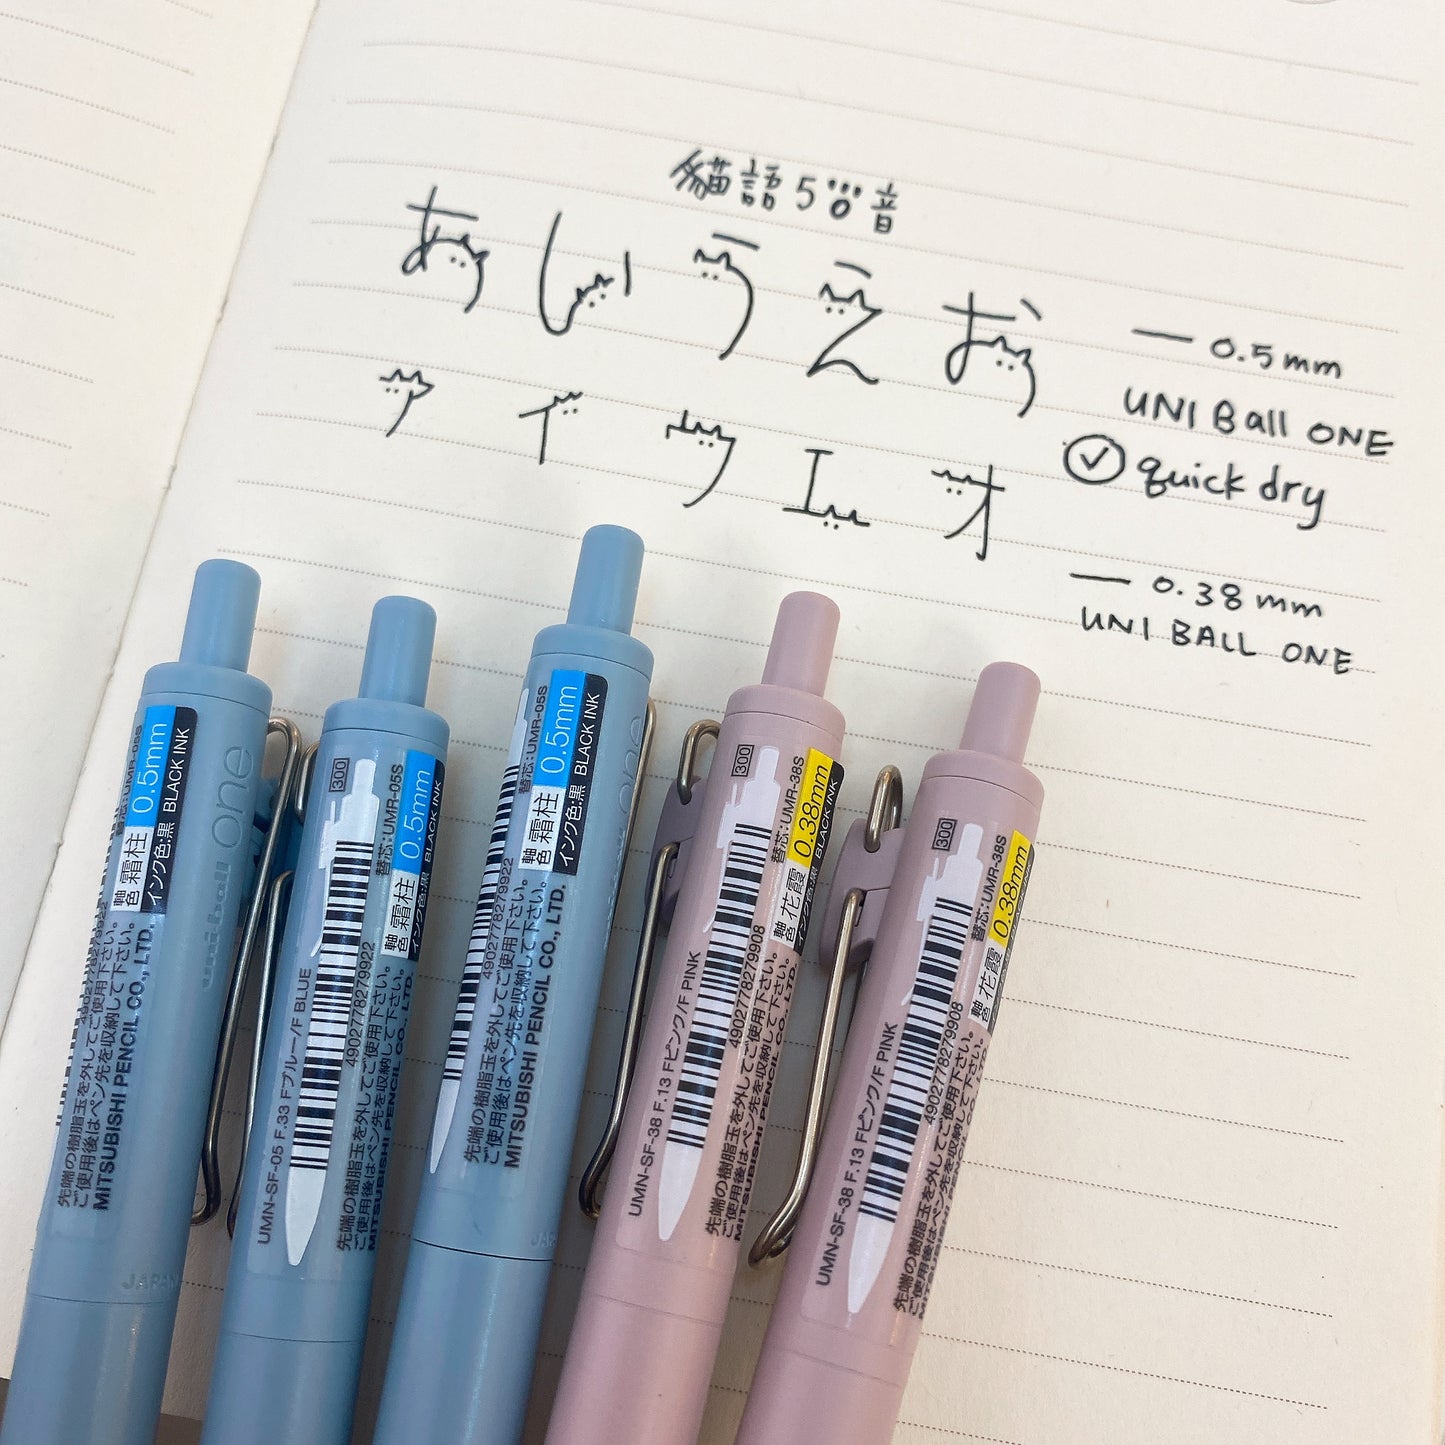 貓語50音
あいうえお
— 0.5mm
UNI Ball ONE
quick dry
アイウエオ
— 0.38mm
UNI BALL ONE
替芯:UMR-05S
軸色 霜柱 0.5mm
インク色:黒 BLACK INK
uni-ball one
4902778279922
先端の樹脂玉を外してご使用下さい。
ご使用後はペン先を収納して下さい。
MITSUBISHI PENCIL CO., LTD.
JAPAN
300
替芯:UMR-05S
軸色 霜柱 0.5mm
インク色:黒 BLACK INK
4902778279922
UMN-SF-05 F.33 Fブルー/F BLUE
先端の樹脂玉を外してご使用下さい。
ご使用後はペン先を収納して下さい。
MITSUBISHI PENCIL CO., LTD.
替芯:UMR-05S
軸色 霜柱 0.5mm
インク色:黒 BLACK INK
one
4902778279922
先端の樹脂玉を外してご使用下さい。
ご使用後はペン先を収納して下さい。
MITSUBISHI PENCIL CO., LTD.
300
替芯:UMR-38S
軸色 花霞 0.38mm
インク色:黒 BLACK INK
4902778279908
UMN-SF-38 F.13 Fピンク/F PINK
先端の樹脂玉を外してご使用下さい。
ご使用後はペン先を収納して下さい。
MITSUBISHI PENCIL CO., LTD.
300
替芯:UMR-38S
軸色 花霞 0.38mm
4902778279908
UMN-SF-38 F.13 Fピンク/F PINK
先端の樹脂玉を外してご使用下さい。
ご使用後はペン先を収納して下さい。
MITSUBISHI PENCIL CO., LTD.